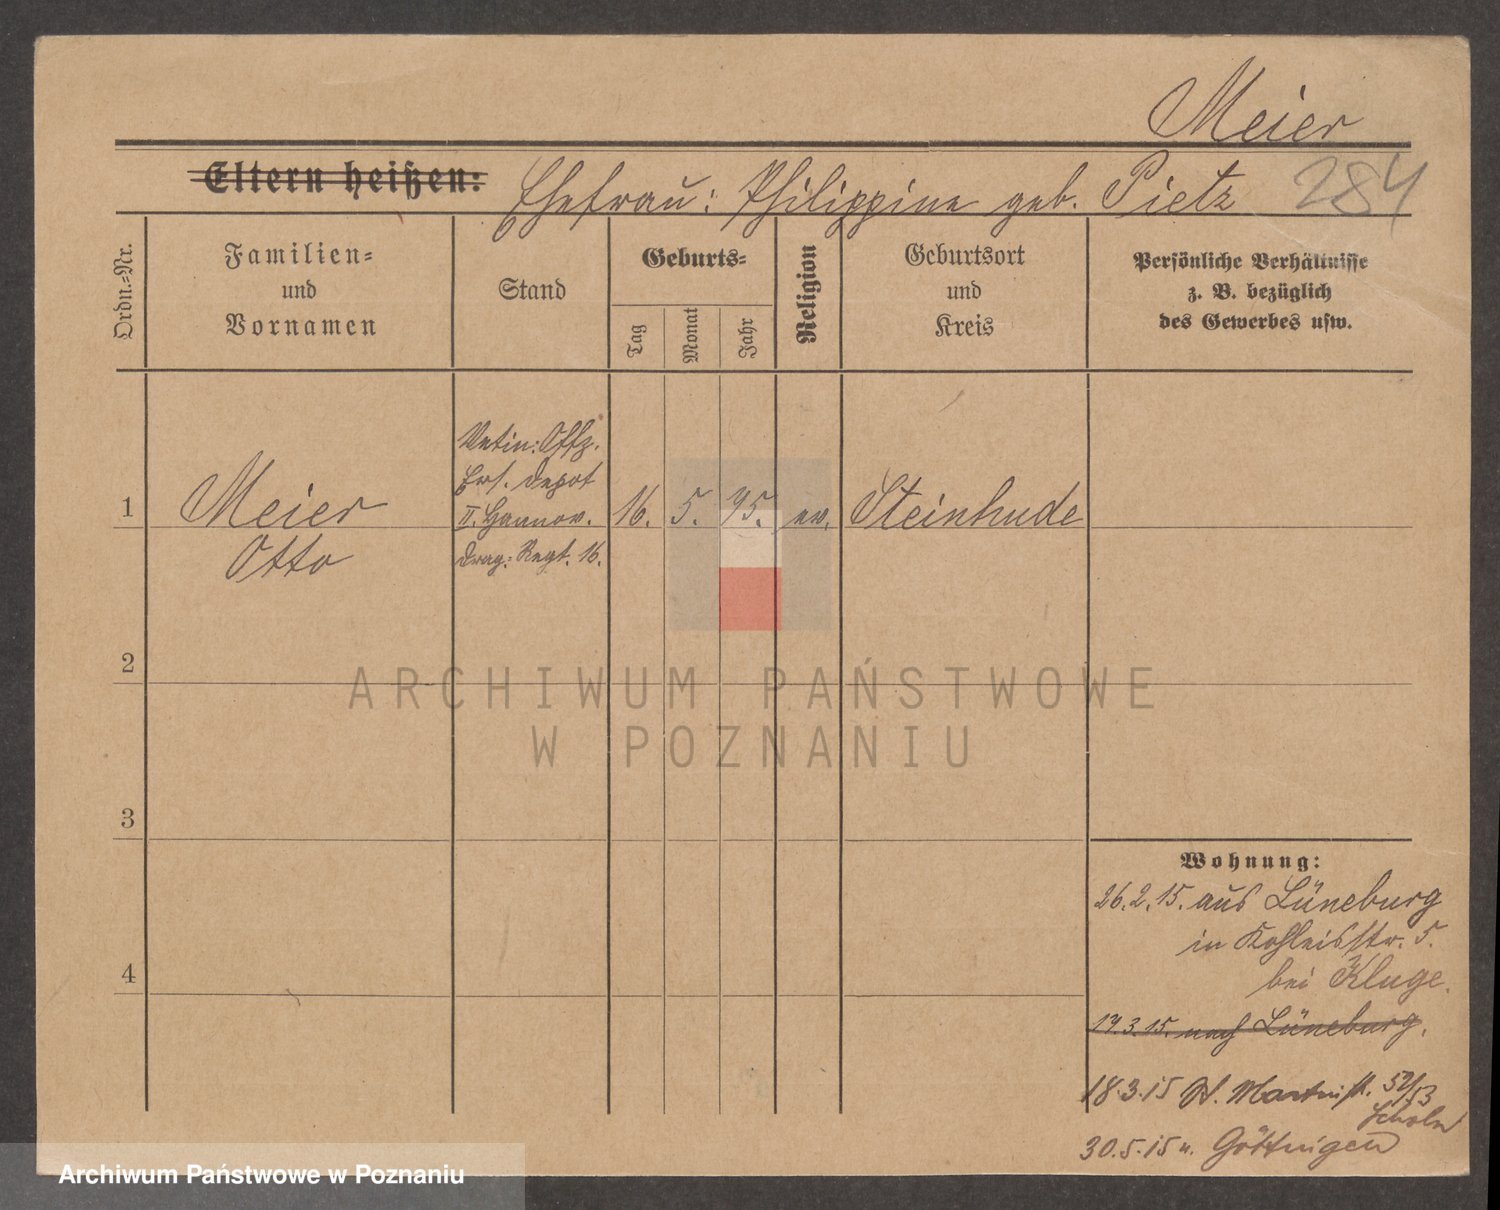 Meier
Eltern heißen: Ehefrau: Philippine geb. Pietz 284
Ordn.=Nr.
Familien=
und
Vornamen
Stand
Geburts=
Tag
Monat
Jahr
Religion
Geburtsort
und
Kreis
Persönliche Verhältnisse
z. B. bezüglich
des Gewerbes usw.
1
Meier
Otto
Vetin: Offz.
Ers. Depot
II. Hannov.
Drag: Regt. 16.
16. 5. 75. ev. Steinhude
2
3
4
Wohnung:
26. 2. 15. aus Lüneburg
in Kohleisstr. 5.
bei Kluge.
17. 3. 15. nach Lüneburg.
18. 3. 15 St. Martinst. 52/53
30. 5. 15 n. Göttingen
ARCHIWUM PAŃSTWOWE
W POZNANIU
Archiwum Państwowe w Poznaniu